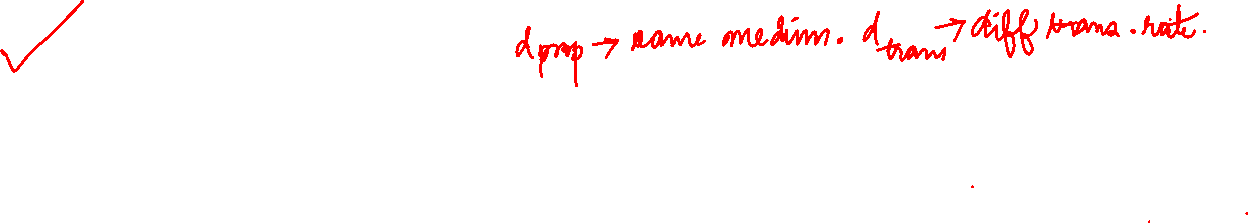 d prop → same medim. d trans → diff trans. rate.